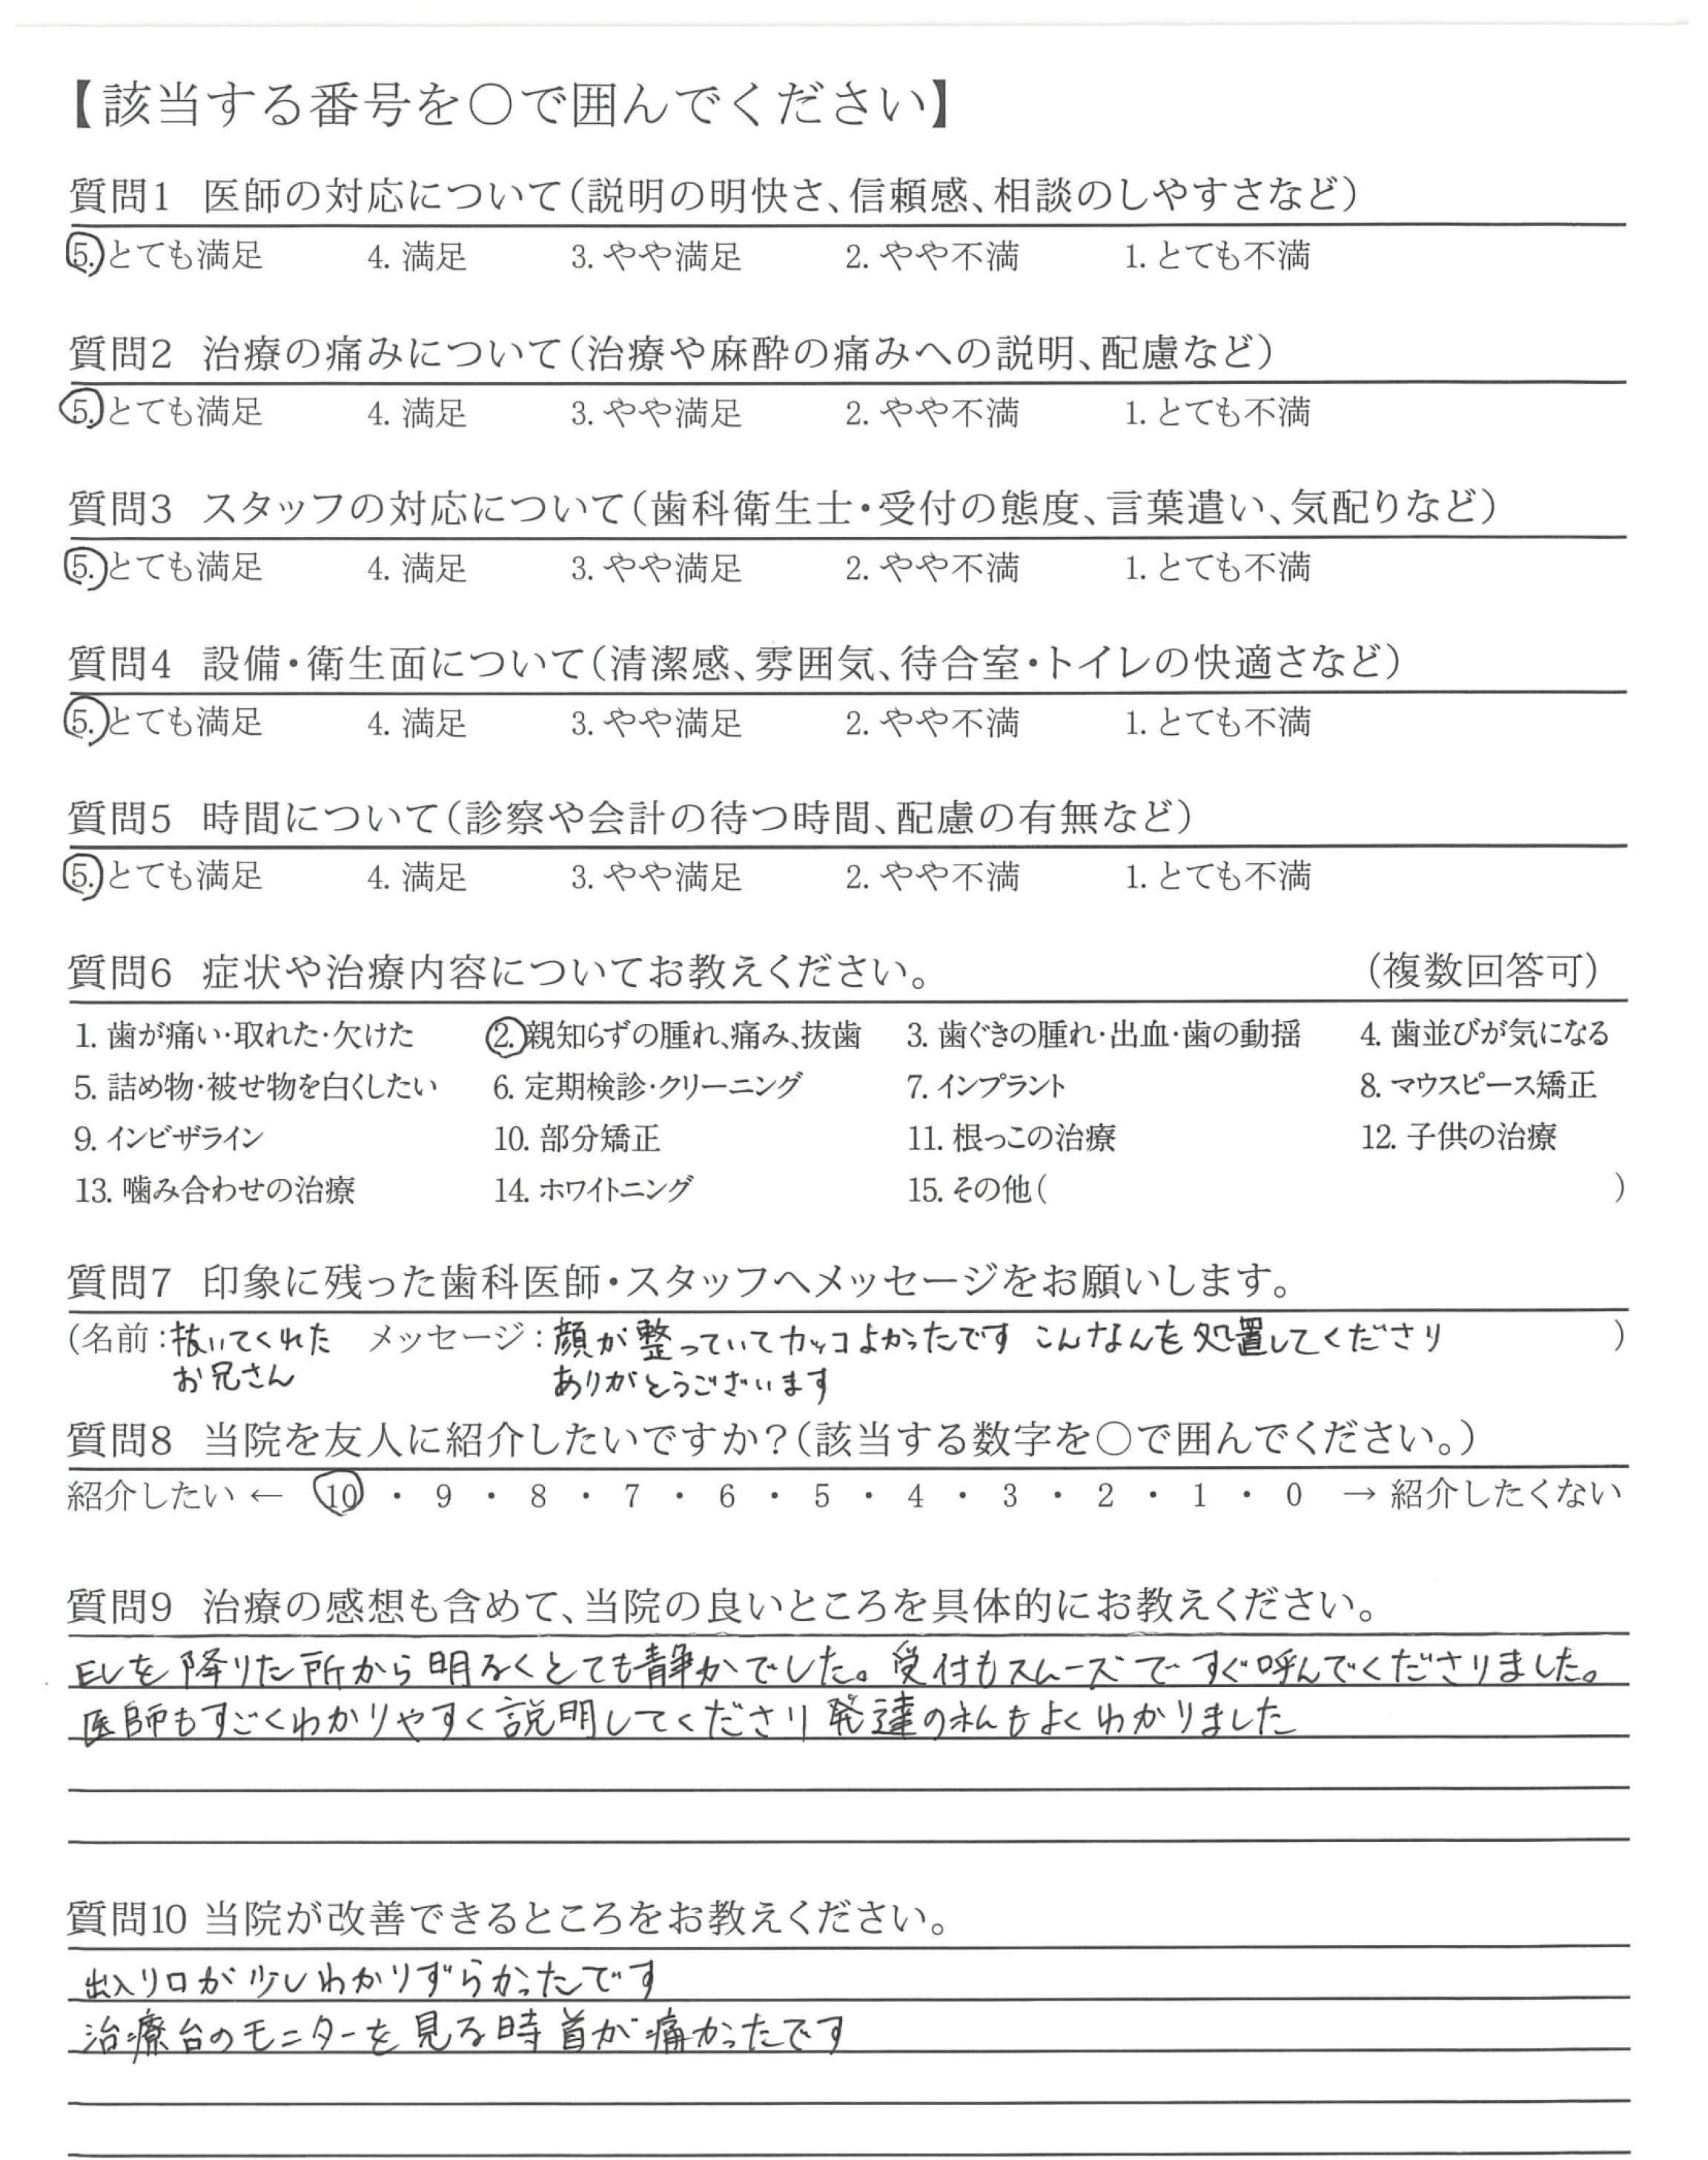 【該当する番号を〇で囲んでください】
質問1 医師の対応について(説明の明快さ、信頼感、相談のしやすさなど)
5. とても満足 4. 満足 3. やや満足 2. やや不満 1. とても不満
質問2 治療の痛みについて(治療や麻酔の痛みへの説明、配慮など)
5. とても満足 4. 満足 3. やや満足 2. やや不満 1. とても不満
質問3 スタッフの対応について(歯科衛生士・受付の態度、言葉遣い、気配りなど)
5. とても満足 4. 満足 3. やや満足 2. やや不満 1. とても不満
質問4 設備・衛生面について(清潔感、雰囲気、待合室・トイレの快適さなど)
5. とても満足 4. 満足 3. やや満足 2. やや不満 1. とても不満
質問5 時間について(診察や会計の待つ時間、配慮の有無など)
5. とても満足 4. 満足 3. やや満足 2. やや不満 1. とても不満
質問6 症状や治療内容についてお教えください。 (複数回答可)
1. 歯が痛い・取れた・欠けた 2. 親知らずの腫れ、痛み、抜歯 3. 歯ぐきの腫れ・出血・歯の動揺 4. 歯並びが気になる
5. 詰め物・被せ物を白くしたい 6. 定期検診・クリーニング 7. インプラント 8. マウスピース矯正
9. インビザライン 10. 部分矯正 11. 根っこの治療 12. 子供の治療
13. 噛み合わせの治療 14. ホワイトニング 15. その他( )
質問7 印象に残った歯科医師・スタッフへメッセージをお願いします。
(名前:抜いてくれた メッセージ:顔が整っていてカッコよかったです こんなんを処置してくださり )
お兄さん ありがとうございます
質問8 当院を友人に紹介したいですか?(該当する数字を〇で囲んでください。)
紹介したい ← 10 ・ 9 ・ 8 ・ 7 ・ 6 ・ 5 ・ 4 ・ 3 ・ 2 ・ 1 ・ 0 → 紹介したくない
質問9 治療の感想も含めて、当院の良いところを具体的にお教えください。
EVを降りた所から明るくとても静かでした。受付もスムーズですぐ呼んでくださりました。
医師もすごくわかりやすく説明してくださり発達のわんもよくわかりました
質問10 当院が改善できるところをお教えください。
出入り口が少しわかりずらかったです
治療台のモニターを見る時首が痛かったです